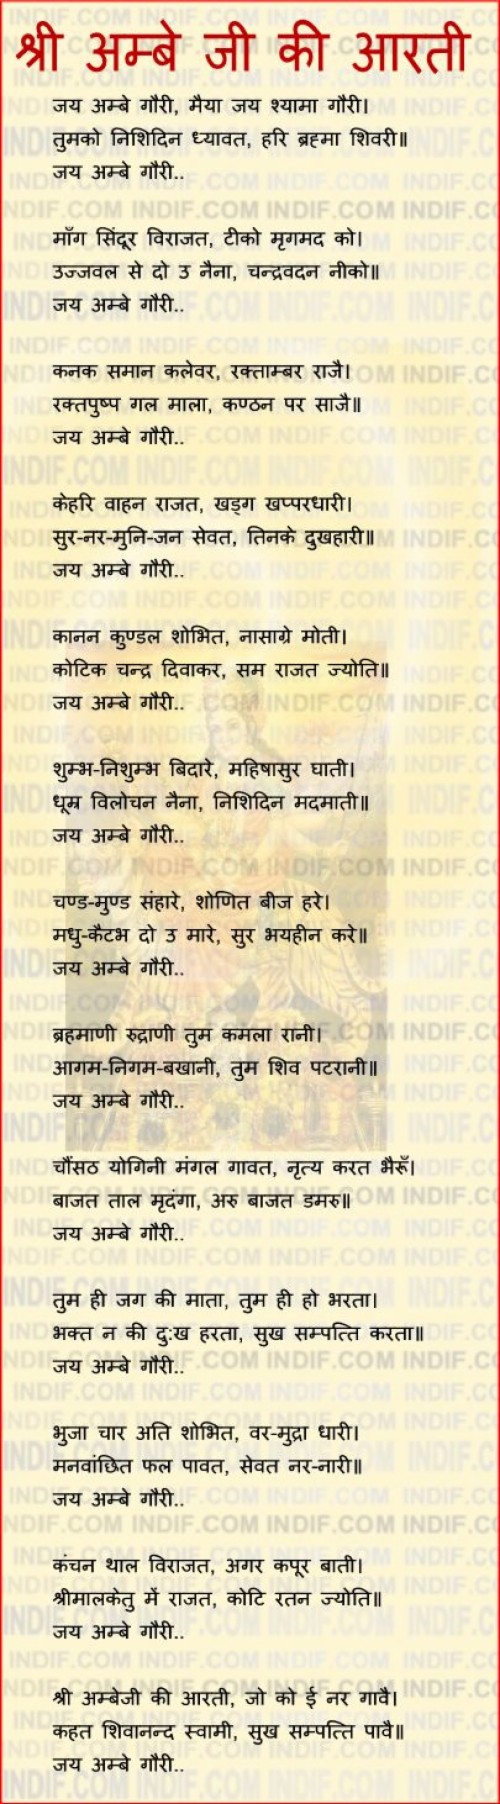 श्री अम्बे जी की आरती
जय अम्बे गौरी, मैया जय श्यामा गौरी।
तुमको निशिदिन ध्यावत, हरि ब्रह्मा शिवरी॥
जय अम्बे गौरी..
माँग सिंदूर विराजत, टीको मृगमद को।
उज्जवल से दो उ नैना, चन्द्रवदन नीको॥
जय अम्बे गौरी..
कनक समान कलेवर, रक्ताम्बर राजै।
रक्तपुष्प गल माला, कण्ठन पर साजै॥
जय अम्बे गौरी..
केहरि वाहन राजत, खड्ग खप्परधारी।
सुर-नर-मुनि-जन सेवत, तिनके दुखहारी॥
जय अम्बे गौरी..
कानन कुण्डल शोभित, नासाग्रे मोती।
कोटिक चन्द्र दिवाकर, सम राजत ज्योति॥
जय अम्बे गौरी..
शुम्भ-निशुम्भ बिदारे, महिषासुर घाती।
धूम्र विलोचन नैना, निशिदिन मदमाती॥
जय अम्बे गौरी..
चण्ड-मुण्ड संहारे, शोणित बीज हरे।
मधु-कैटभ दो उ मारे, सुर भयहीन करे॥
जय अम्बे गौरी..
ब्रहमाणी रुद्राणी तुम कमला रानी।
आगम-निगम-बखानी, तुम शिव पटरानी॥
जय अम्बे गौरी..
चौंसठ योगिनी मंगल गावत, नृत्य करत भैरूँ।
बाजत ताल मृदंगा, अरु बाजत डमरु॥
जय अम्बे गौरी..
तुम ही जग की माता, तुम ही हो भरता।
भक्त न की दु:ख हरता, सुख सम्पत्ति करता॥
जय अम्बे गौरी..
भुजा चार अति शोभित, वर-मुद्रा धारी।
मनवांछित फल पावत, सेवत नर-नारी॥
जय अम्बे गौरी..
कंचन थाल विराजत, अगर कपूर बाती।
श्रीमालकेतु में राजत, कोटि रतन ज्योति॥
जय अम्बे गौरी..
श्री अम्बेजी की आरती, जो को ई नर गावै।
कहत शिवानन्द स्वामी, सुख सम्पत्ति पावै॥
जय अम्बे गौरी..
INDIF.COM